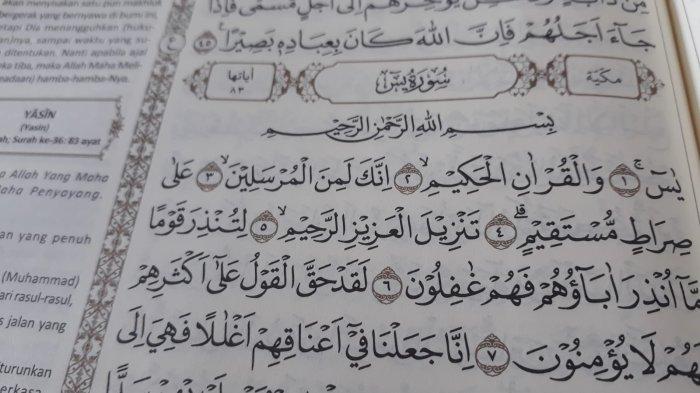 مِنْ دَاۤبَّةٍ وَّلٰكِنْ يُّؤَخِّرُهُمْ اِلٰٓى اَجَلٍ مُّسَمًّىۚ فَاِذَا
جَاۤءَ اَجَلُهُمْ فَاِنَّ اللّٰهَ كَانَ بِعِبَادِهٖ بَصِيْرًا ࣖ ٤٥
مكية
سُوْرَةُ يٰسۤ
آياتها ٨٣
بِسْمِ اللّٰهِ الرَّحْمٰنِ الرَّحِيْمِ
يٰسۤ ۚ ١ وَالْقُرْاٰنِ الْحَكِيْمِۙ ٢ اِنَّكَ لَمِنَ الْمُرْسَلِيْنَۙ ٣ عَلٰى
صِرَاطٍ مُّسْتَقِيْمٍۗ ٤ تَنْزِيْلَ الْعَزِيْزِ الرَّحِيْمِۙ ٥ لِتُنْذِرَ قَوْمًا
مَّآ اُنْذِرَ اٰبَاۤؤُهُمْ فَهُمْ غٰفِلُوْنَ ٦ لَقَدْ حَقَّ الْقَوْلُ عَلٰٓى اَكْثَرِهِمْ
فَهُمْ لَا يُؤْمِنُوْنَ ٧ اِنَّا جَعَلْنَا فِيْٓ اَعْنَاقِهِمْ اَغْلٰلًا فَهِيَ اِلَى
akan menyisakan satu pun makhluk
bergerak yang bernyawa di bumi ini,
tetapi Dia menangguhkan (huku-
sampai waktu yang su-
ditentukan. Nanti apabila ajal
tiba, maka Allah Maha Meli-
hamba-hamba-Nya.
YĀSĪN
(Yasin)
Surah ke-36: 83 ayat
Allah Yang Maha
Maha Penyayang.
yang penuh
(Muhammad)
rasul-rasul,
jalan yang